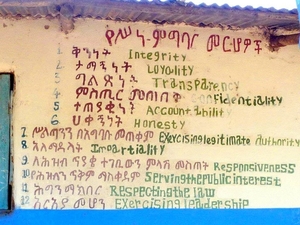 የሥነ-ምግባር መርሆዎች
1 ቅንነት Integrity
2 ታማኝነት Loyality
3 ግልጽነት Transparency
4 ምስጢር መጠበቅ Confidentiality
5 ተጠያቂነት Accountability
6 ሀቀኝነት Honesty
7 ሥልጣንን በአግባቡ መጠቀም Exercising legitimate Authority
8 አለማዳላት Impartiality
9 ለሕዝብ ጥያቄ ተገቢውን ምላሽ መስጠት Responsiveness
10 የሕዝብን ጥቅም ማስቀደም Serving the public interest
11 ሕግን ማክበር Respecting the law
12 አርአያ መሆን Exercising leadership